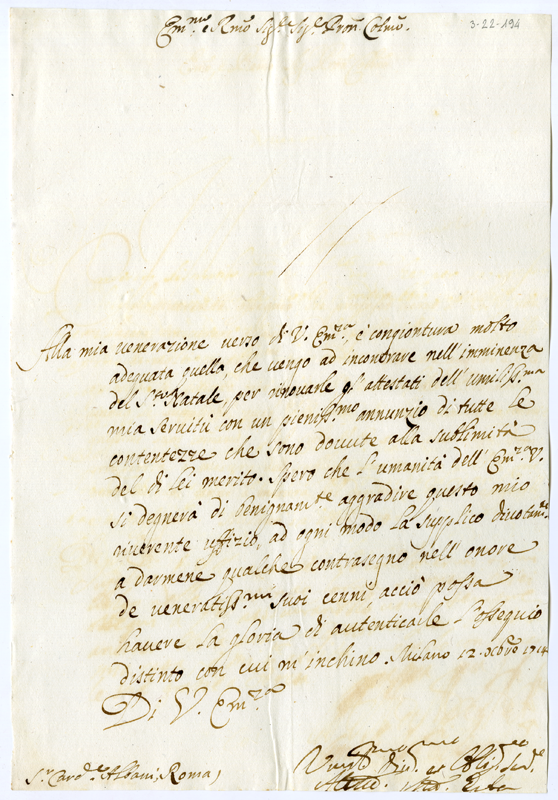 3-22-194
Em.mo e Rmo Sig.r Sig.r Pron Colmo.
Alla mia venerazione verso di V. Em.za, è congiontura molto
adequata quella, che vengo ad incontrare nell'imminenza
del S.to Natale, per rinovarle gl'attestati dell'umiliss.ma
mia servitù con un pieniss.mo annunzio di tutte le
contentezze che sono dovute alla sublimità
del di lei merito. Spero che l'umanità dell'Em.za V.
si degnerà di benignam.te aggradire questo mio
riverente uffizio, ad ogni modo la supplico divotam.te
a darmene qualche contrasegno nell'onore
de veneratiss.mi suoi cenni, acciò possa
havere la gloria di autenticarle l'ossequio
distinto con cui m'inchino. Milano 12. Xbre 1714
Di V. Em.za
S.r Card.le Albani, Roma